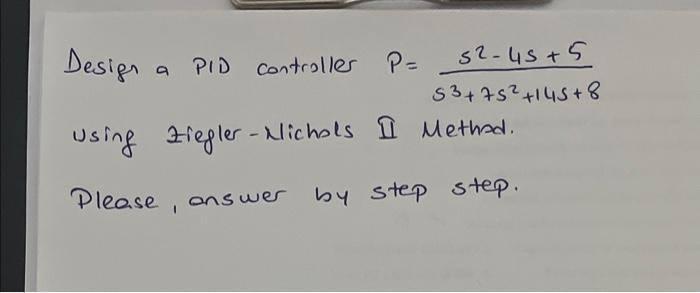 Design a PID controller P= s²-4s+5 / s³+7s²+14s+8
using Ziegler-Nichols II Method.
Please, answer by step step.